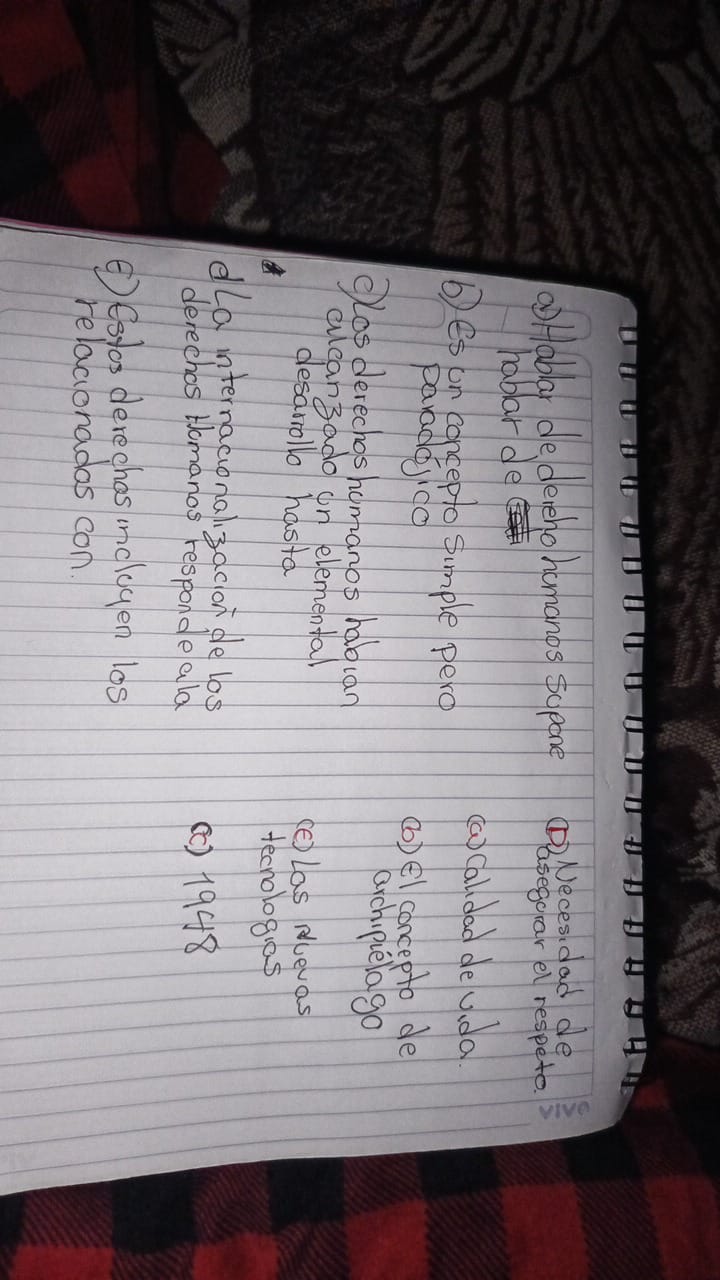 a) Hablar de dereho humanos supone
hablar de
b) Es un concepto simple pero
paradójico
c) Los derechos humanos habian
alcanzado un elemental
desarrollo hasta
d La internacionalización de los
derechos Humanos responde ala
E) Estos derechos incluyen los
relacionados con.
(D) Necesidad de
asegurar el respeto.
(a) Calidad de vida.
(b) El concepto de
archipiélago
(E) Las Nuevas
tecnologias
(c) 1948